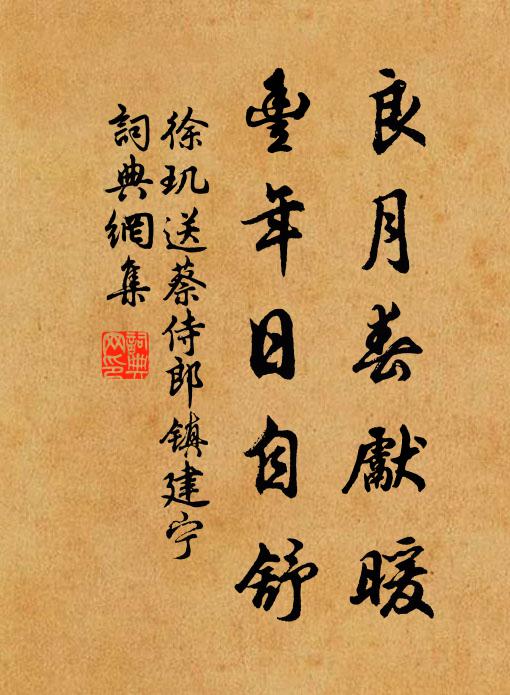 良月春獻暖
豐年日自舒
徐玑送蔡侍郎镇建宁
詞典網集
詞典网印